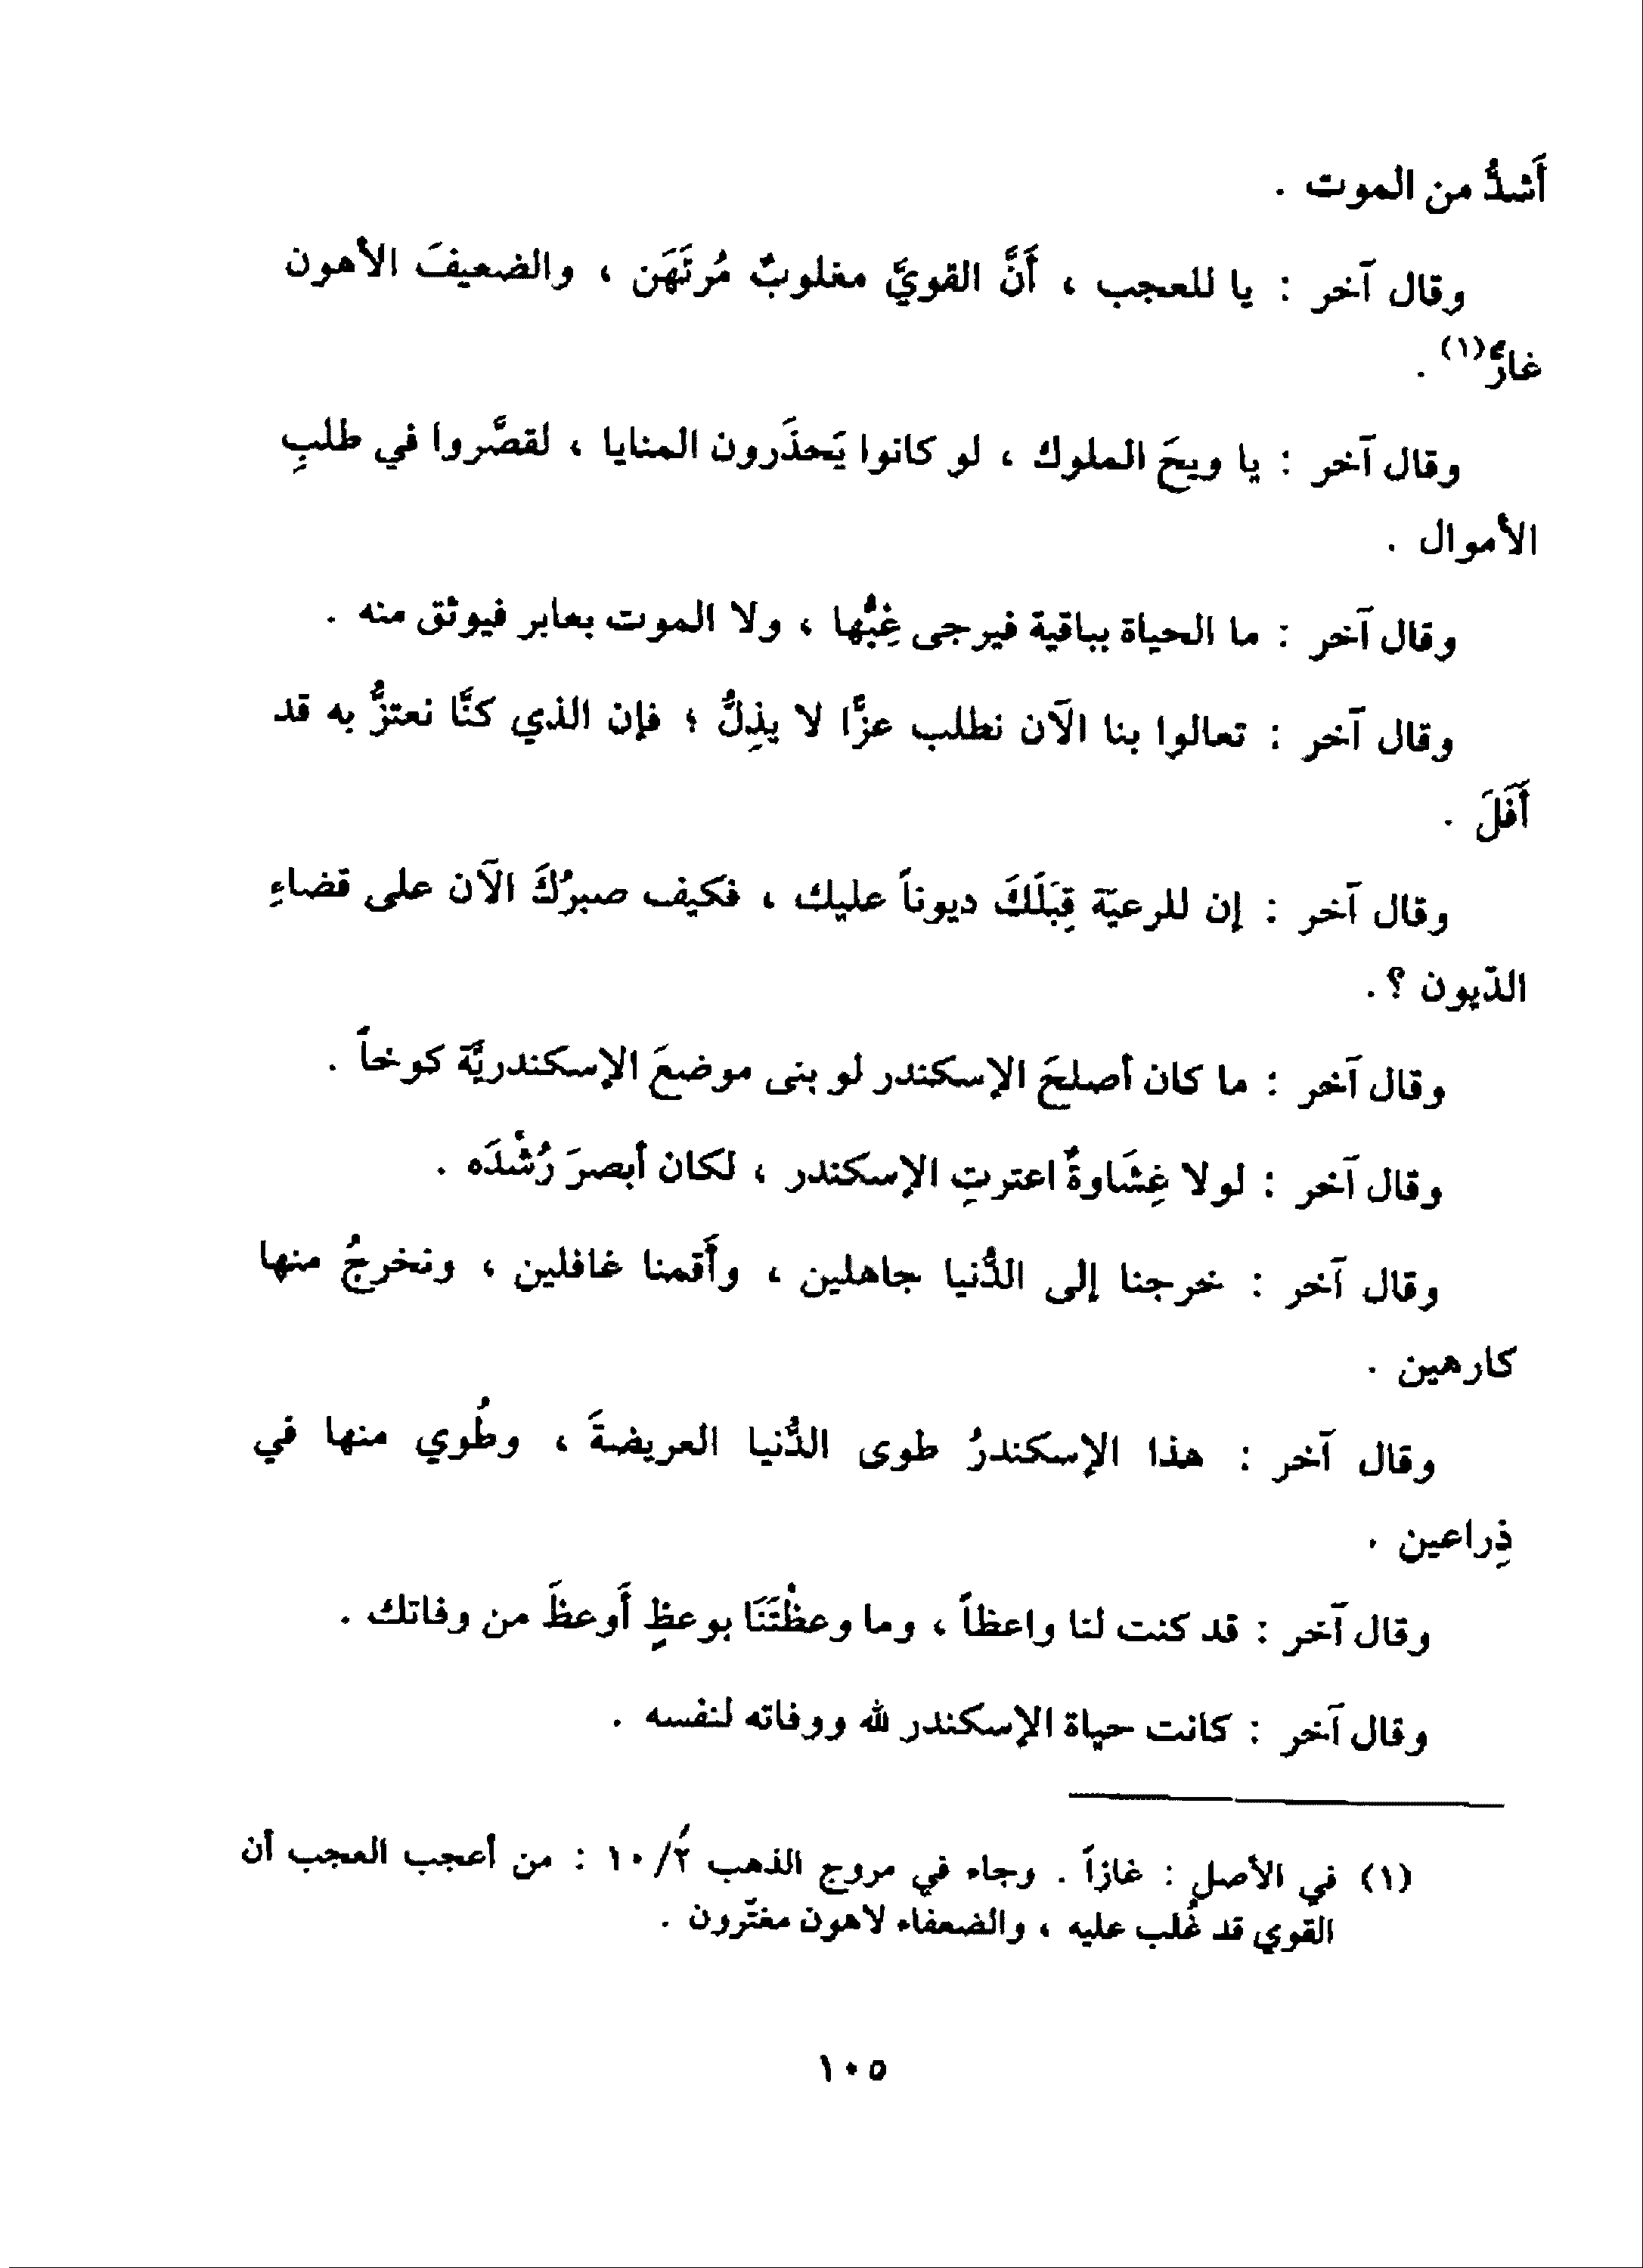 أَشدُّ من الموت .
وقال آخر : يا للعجب ، أَنَّ القويَّ مغلوبٌ مُرتَهَن ، والضعيفَ الأهون
غارٌّ(١) .
وقال آخر : يا ويحَ الملوك ، لو كانوا يَحذَرون المنايا ، لقصَّروا في طلبِ
الأموال .
وقال آخر : ما الحياة بباقية فيرجى غِبُّها ، ولا الموت بعابر فيوثق منه .
وقال آخر : تعالوا بنا الآن نطلب عزًّا لا يذِلُّ ؛ فإن الذي كنَّا نعتزُّ به قد
أَفَلَ .
وقال آخر : إن للرعيّة قِبَلَكَ ديوناً عليك ، فكيف صبرُكَ الآن على قضاءِ
الدّيون ؟ .
وقال آخر : ما كان أصلحَ الإسكندر لو بنى موضعَ الإسكندريَّة كوخاً .
وقال آخر : لولا غِشَاوةٌ اعترتِ الإسكندر ، لكان أبصرَ رُشْدَه .
وقال آخر : خرجنا إلى الدُّنيا جاهلين ، وأَقمنا غافلين ، ونخرجُ منها
كارهين .
وقال آخر : هذا الإسكندرُ طوى الدُّنيا العريضةَ ، وطُوي منها في
ذِراعين .
وقال آخر : قد كنت لنا واعظاً ، وما وعظْتَنَا بوعظٍ أَوعظَ من وفاتك .
وقال آخر : كانت حياة الإسكندر لله ووفاته لنفسه .
(١) في الأصل : غازاً . وجاء في مروج الذهب ٢/١٠ : من أعجب العجب أن
القوي قد غُلب عليه ، والضعفاء لاهون مغتّرون .
١٠٥